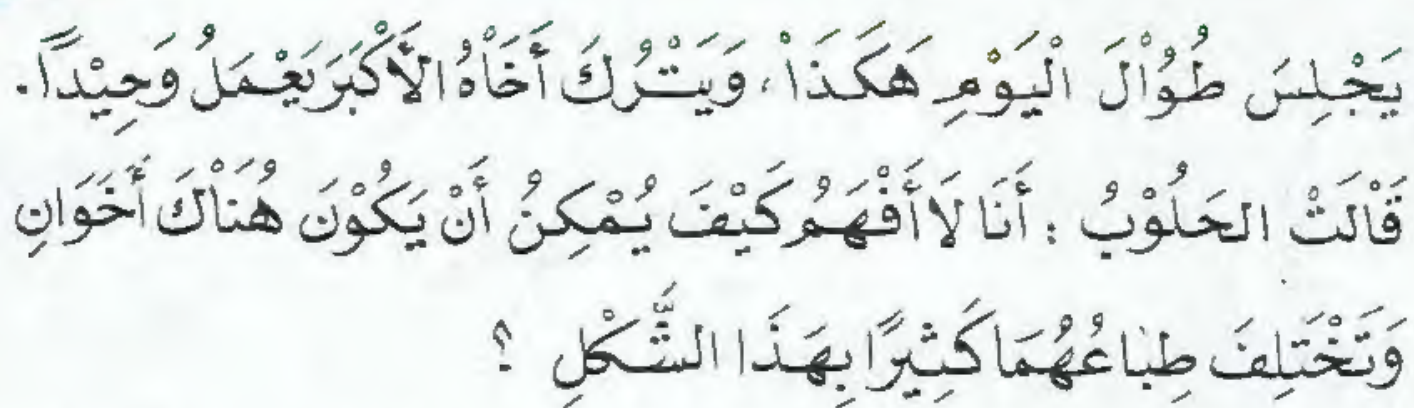 يَجْلِسَ طُوْالَ الْيَوْمِ هَكَذَاْ، وَيَتْرُكَ أَخَاْهُ الأَكْبَرَ يَعْمَلُ وَحِيْدًا.
قَاْلَتْ الحَلُوْبُ : أَنَا لَا أَفْهَمُ كَيْفَ يُمْكِنُ أَنْ يَكُوْنَ هُنَاْكَ أَخَوَانِ
وَتَخْتَلِفَ طِبَاعُهُمَا كَثِيرًا بِهَذَا الشَّكْلِ ؟